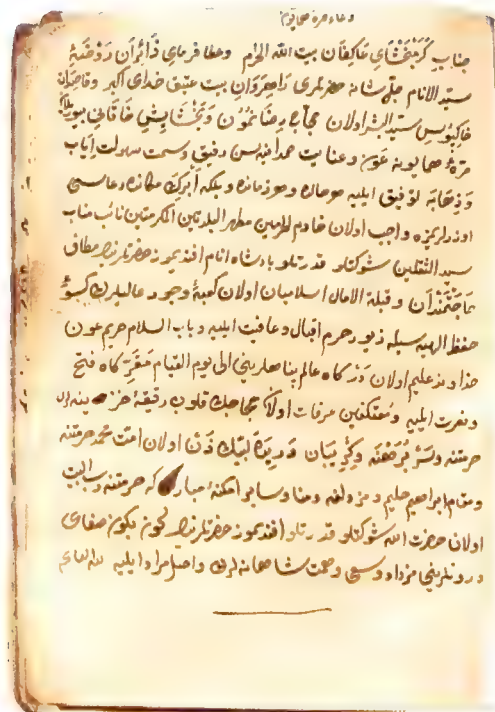 دعاء صره همايون
جناب كرمبخشاى عاكفان بيت الله الحرام وعطا فرماى زائران روضهٔ
سيد الانام جل شانه حضرتلرى راهروان بيت عتيق خداى اكبر وقاصدان
خاكبوس سيد البشر اولان حجاجه رهنمون وبخشايش خاقانى بيورلان
صرهٔ همايونه عون وعنايت صمدانيه‌سن رفيق وسمت سهولت اياب
وذهابه توفيق ايليه هر حالده وهر زمانده وبلكه ابرك مكانده دعاسى
اوزرلريمزه واجب اولان خادم الحرمين مطهر البلدتين المكرمتين نائب مناب
سيد الثقلين شوكتلو قدرتلو پادشاه انام افندیمز حضرتلرینك مطاف
حاجتمندان وقبلة الآمال اسلاميان اولان كعبهٔ وجود عاليلرين كسوهٔ
حفظ الهيه سيله زيور حرم اقبال وعافيت ايليه وباب السلام حريم عون
خداوند عليم اولان دركاه عالم پناهلرينى الى يوم القيام مقر كاه فتح
ونصرت ايليه ومعتكفين عرفات اولان حجاجك قلوب رقيقهٔ
حرمتنه وكروبيان لبيك زن اولان امت محمد حرمتنه
ومقام ابراهيم حليم ومزدلفه ومنا وساير امكنهٔ مباركه حرمتنه رب البيت
اولان حضرت الله شوكتلو قدرتلو افندیمز حضرتلرینك كون بكون صفاى
درونلرينى مزداد وسعى وهمت شاهانه‌لرين واصل مراد ايليه